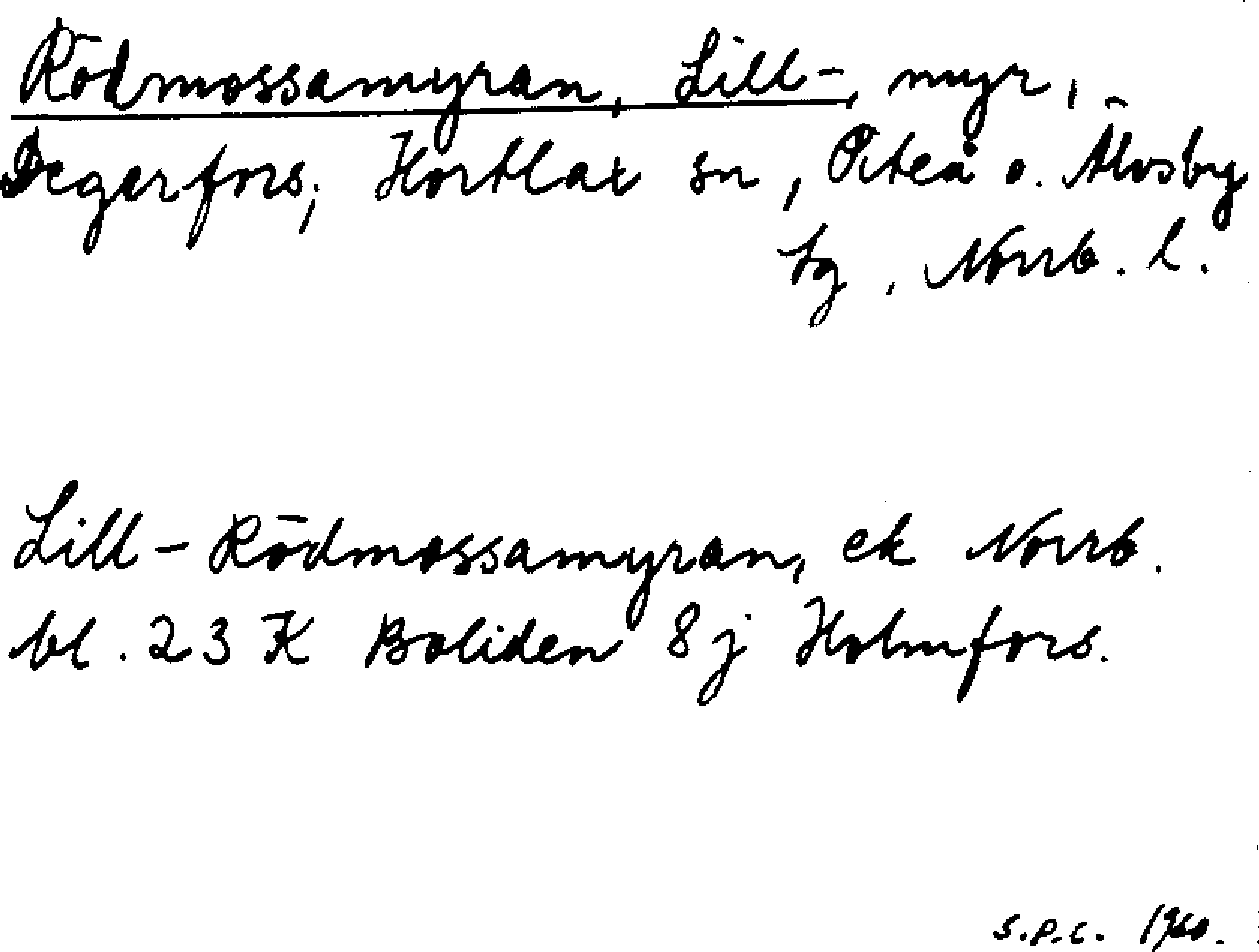 Rödmossamyran, Lill-, myr,
Degerfors, Hortlax sn, Piteå o. Älvsby
tg, Norrb. l.
Lill-Rödmossamyran, ek Norrb.
bl. 23 K Boliden 8j Holmfors.
S.P.C. 1960.